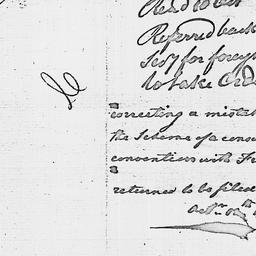 Read to be
Referred back
Secy for foreig
to take Ord
correcting a mistak
the Scheme of a cons
convention with Fr
returned to be filed